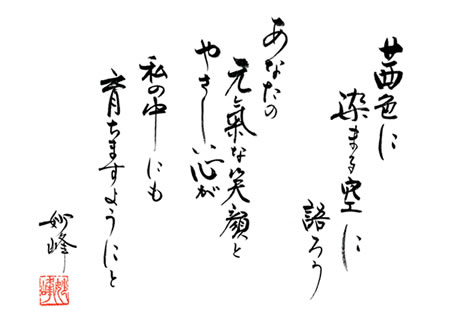 茜色に
染まる空に
語ろう
あなたの
元氣な笑顔と
やさしい心が
私の中にも
育ちますようにと
妙峰